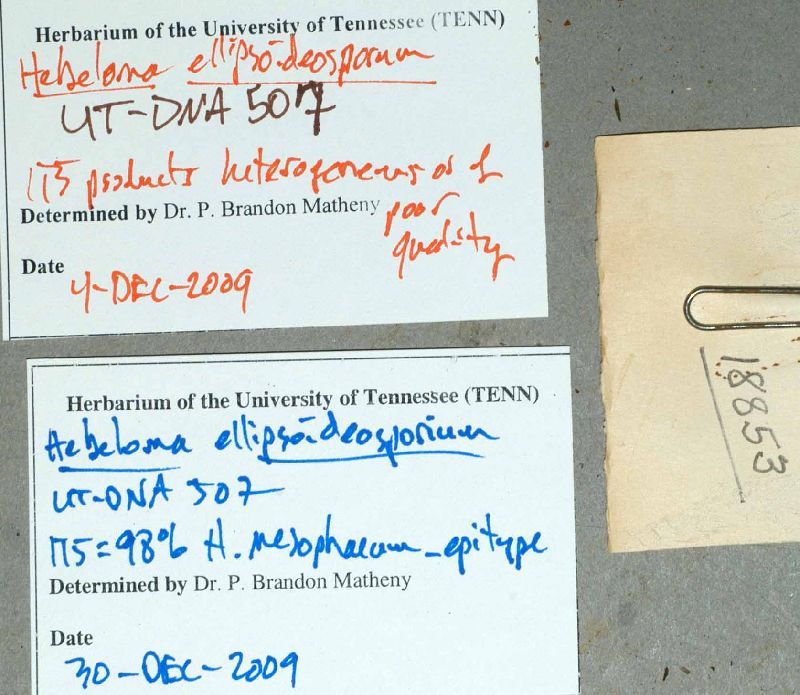 Herbarium of the University of Tennessee (TENN)
Hebeloma ellipsoideosporum
UT-DNA 507
ITS products heterogeneous or of
poor
quality
Determined by Dr. P. Brandon Matheny
Date
4-DEC-2009
Herbarium of the University of Tennessee (TENN)
Hebeloma ellipsoideosporium
UT-DNA 507
ITS=98% H. mesophaeum_epitype
Determined by Dr. P. Brandon Matheny
Date
30-DEC-2009
18853